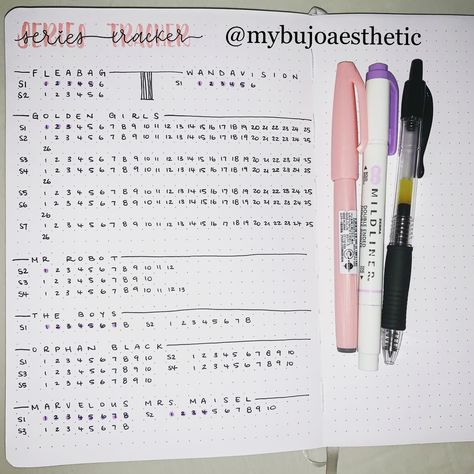 SERIES TRACKER
series tracker
@mybujoaesthetic
FLEABAG
S1 1 2 3 4 5 6
S2 1 2 3 4 5 6
WANDAVISION
S1 1 2 3 4 5 6
GOLDEN GIRLS
S1 1 2 3 4 5 6 7 8 9 10 11 12 13 14 15 16 17 18 19 20 21 22 23 24 25
S2 1 2 3 4 5 6 7 8 9 10 11 12 13 14 15 16 17 18 19 20 21 22 23 24 25
26
S3 1 2 3 4 5 6 7 8 9 10 11 12 13 14 15 16 17 18 19 20 21 22 23 24 25
S4 1 2 3 4 5 6 7 8 9 10 11 12 13 14 15 16 17 18 19 20 21 22 23 24 25
26
S5 1 2 3 4 5 6 7 8 9 10 11 12 13 14 15 16 17 18 19 20 21 22 23 24 25
S6 1 2 3 4 5 6 7 8 9 10 11 12 13 14 15 16 17 18 19 20 21 22 23 24 25
26
S7 1 2 3 4 5 6 7 8 9 10 11 12 13 14 15 16 17 18 19 20 21 22 23 24 25
26
MR ROBOT
S2 1 2 3 4 5 6 7 8 9 10 11 12
S3 1 2 3 4 5 6 7 8 9 10
S4 1 2 3 4 5 6 7 8 9 10 11 12 13
THE BOYS
S1 1 2 3 4 5 6 7 8
S2 1 2 3 4 5 6 7 8
ORPHAN BLACK
S1 1 2 3 4 5 6 7 8 9 10
S2 1 2 3 4 5 6 7 8 9 10
S3 1 2 3 4 5 6 7 8 9 10
S4 1 2 3 4 5 6 7 8 9 10
S5 1 2 3 4 5 6 7 8 9 10
MARVELOUS MRS. MAISEL
S1 1 2 3 4 5 6 7 8
S2 1 2 3 4 5 6 7 8 9 10
S3 1 2 3 4 5 6 7 8
MILDLINER
DOUBLE ENDED